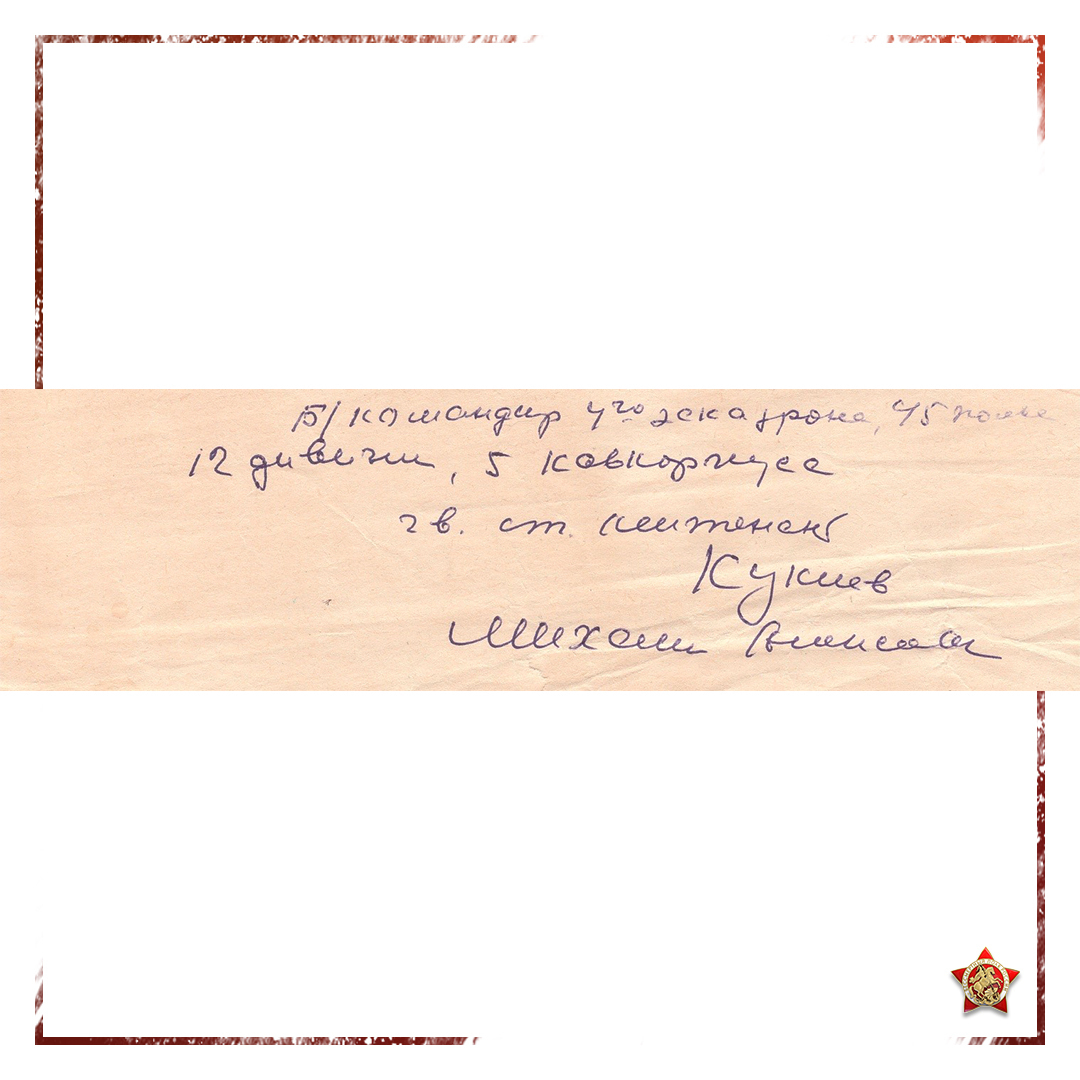 Б/командир 4го эскадрона, 45 полка
12 дивизии, 5 кавкорпуса
гв. ст. лейтенант
Куклев
Михаил